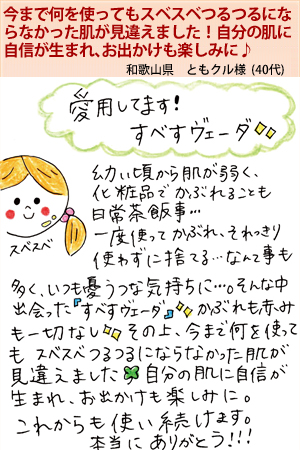 今まで何を使ってもスベスベつるつるにな
らなかった肌が見違えました！自分の肌に
自信が生まれ、お出かけも楽しみに♪
和歌山県　ともクル様（40代）
愛用してます!
すべすヴェーダ
幼い頃から肌が弱く、
化粧品でかぶれることも
日常茶飯事…
一度使ってかぶれ、それっきり
使わずに捨てる…なんて事も
スベスベ
多く、いつも憂うつな気持ちに…。そんな中
出会った『すべすヴェーダ』かぶれも赤み
も一切なし その上、今まで何を使って
も スベスベつるつるにならなかった肌が
見違えました 自分の肌に自信が
生まれ、お出かけも楽しみに。
これからも使い続けます。
本当に ありがとう!!!